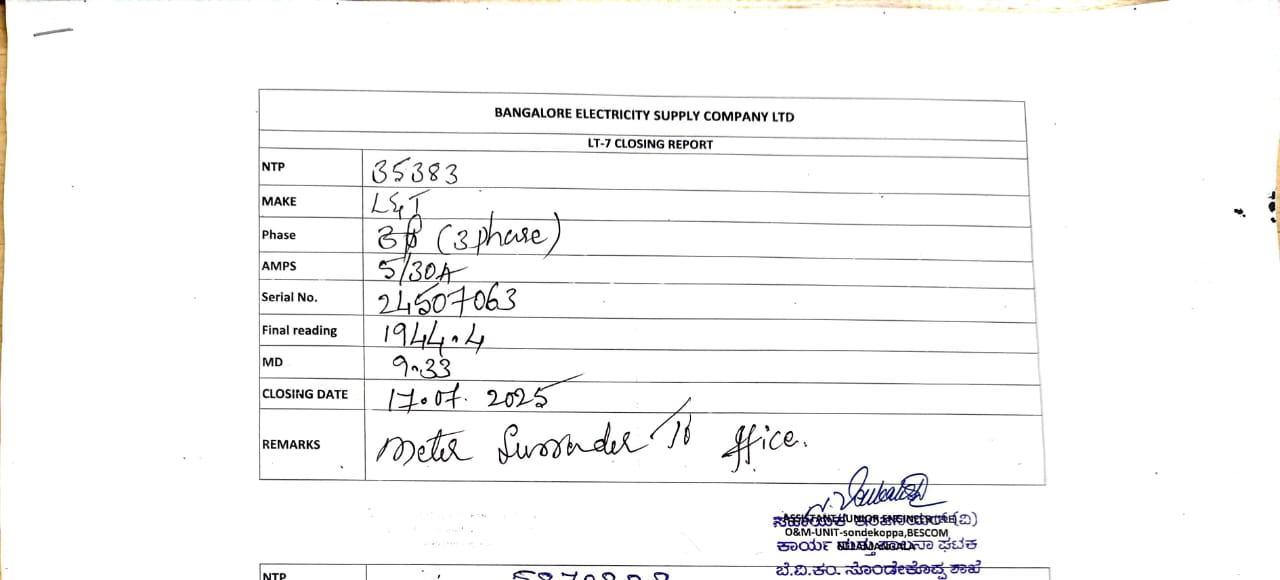 BANGALORE ELECTRICITY SUPPLY COMPANY LTD
LT-7 CLOSING REPORT
NTP 35383
MAKE L&T
Phase 3ϕ (3 phase)
AMPS 5/30A
Serial No. 24507063
Final reading 1944.4
MD 9.33
CLOSING DATE 17.07.2025
REMARKS Meter Surrander to office.
ASSISTANT/JUNIOR ENGINEER (ವಿ)
O&M-UNIT-sondekoppa,BESCOM
ಕಾರ್ಯ ಮತ್ತು ಪಾಲನಾ ಘಟಕ
ಬೆ.ವಿ.ಕಂ. ಸೊಂಡೇಕೊಪ್ಪ ಶಾಖೆ
NTP